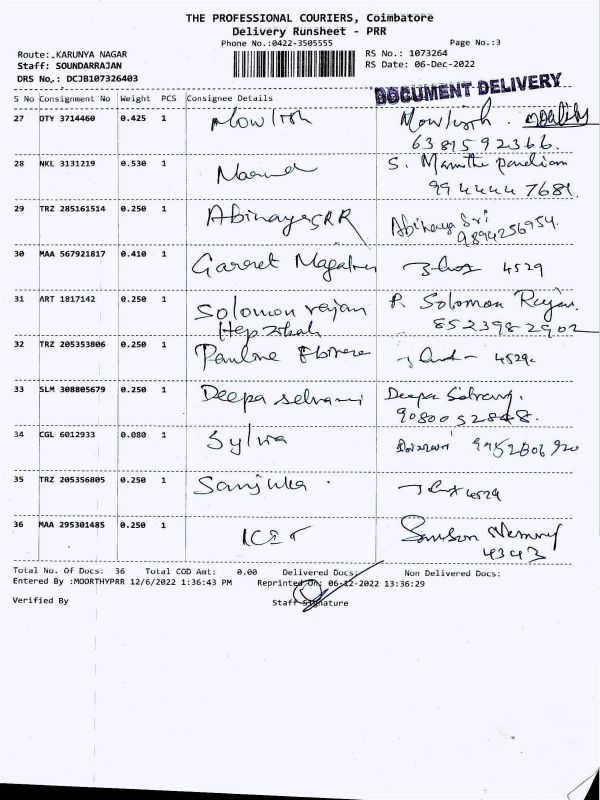 THE PROFESSIONAL COURIERS, Coimbatore
Delivery Runsheet - PRR
Phone No.:0422-3505555
Page No.:3
Route:.KARUNYA NAGAR
Staff: SOUNDARRAJAN
DRS No.: DCJB107326403
RS No.: 1073264
RS Date: 06-Dec-2022
DOCUMENT DELIVERY
S No Consignment No Weight PCS Consignee Details
27 DTY 3714460 0.425 1 Mowlish Mowlish.
6381592366.
28 NKL 3131219 0.530 1 S.
994444 7681.
29 TRZ 285161514 0.250 1 Abinaya SRR Abinaya Sri
9894256954.
30 MAA 567921817 0.410 1 Garret 4529
31 ART 1817142 0.250 1 Solomon rajan P. Solomon Rajan.
Hepzibah 8523982902
32 TRZ 205353806 0.250 1 Pauline 4529
33 SLM 308805679 0.250 1 Deepa selvami Deepa
9080052848.
34 CGL 6012933 0.080 1 Sylvia 9952806920
35 TRZ 205356805 0.250 1 4529
36 MAA 295301485 0.250 1 Samson
4343
Total No. Of Docs: 36 Total COD Amt: 0.00 Delivered Docs: Non Delivered Docs:
Entered By :MOORTHYPRR 12/6/2022 1:36:43 PM Reprinted On: 06-12-2022 13:36:29
Verified By Staff Signature